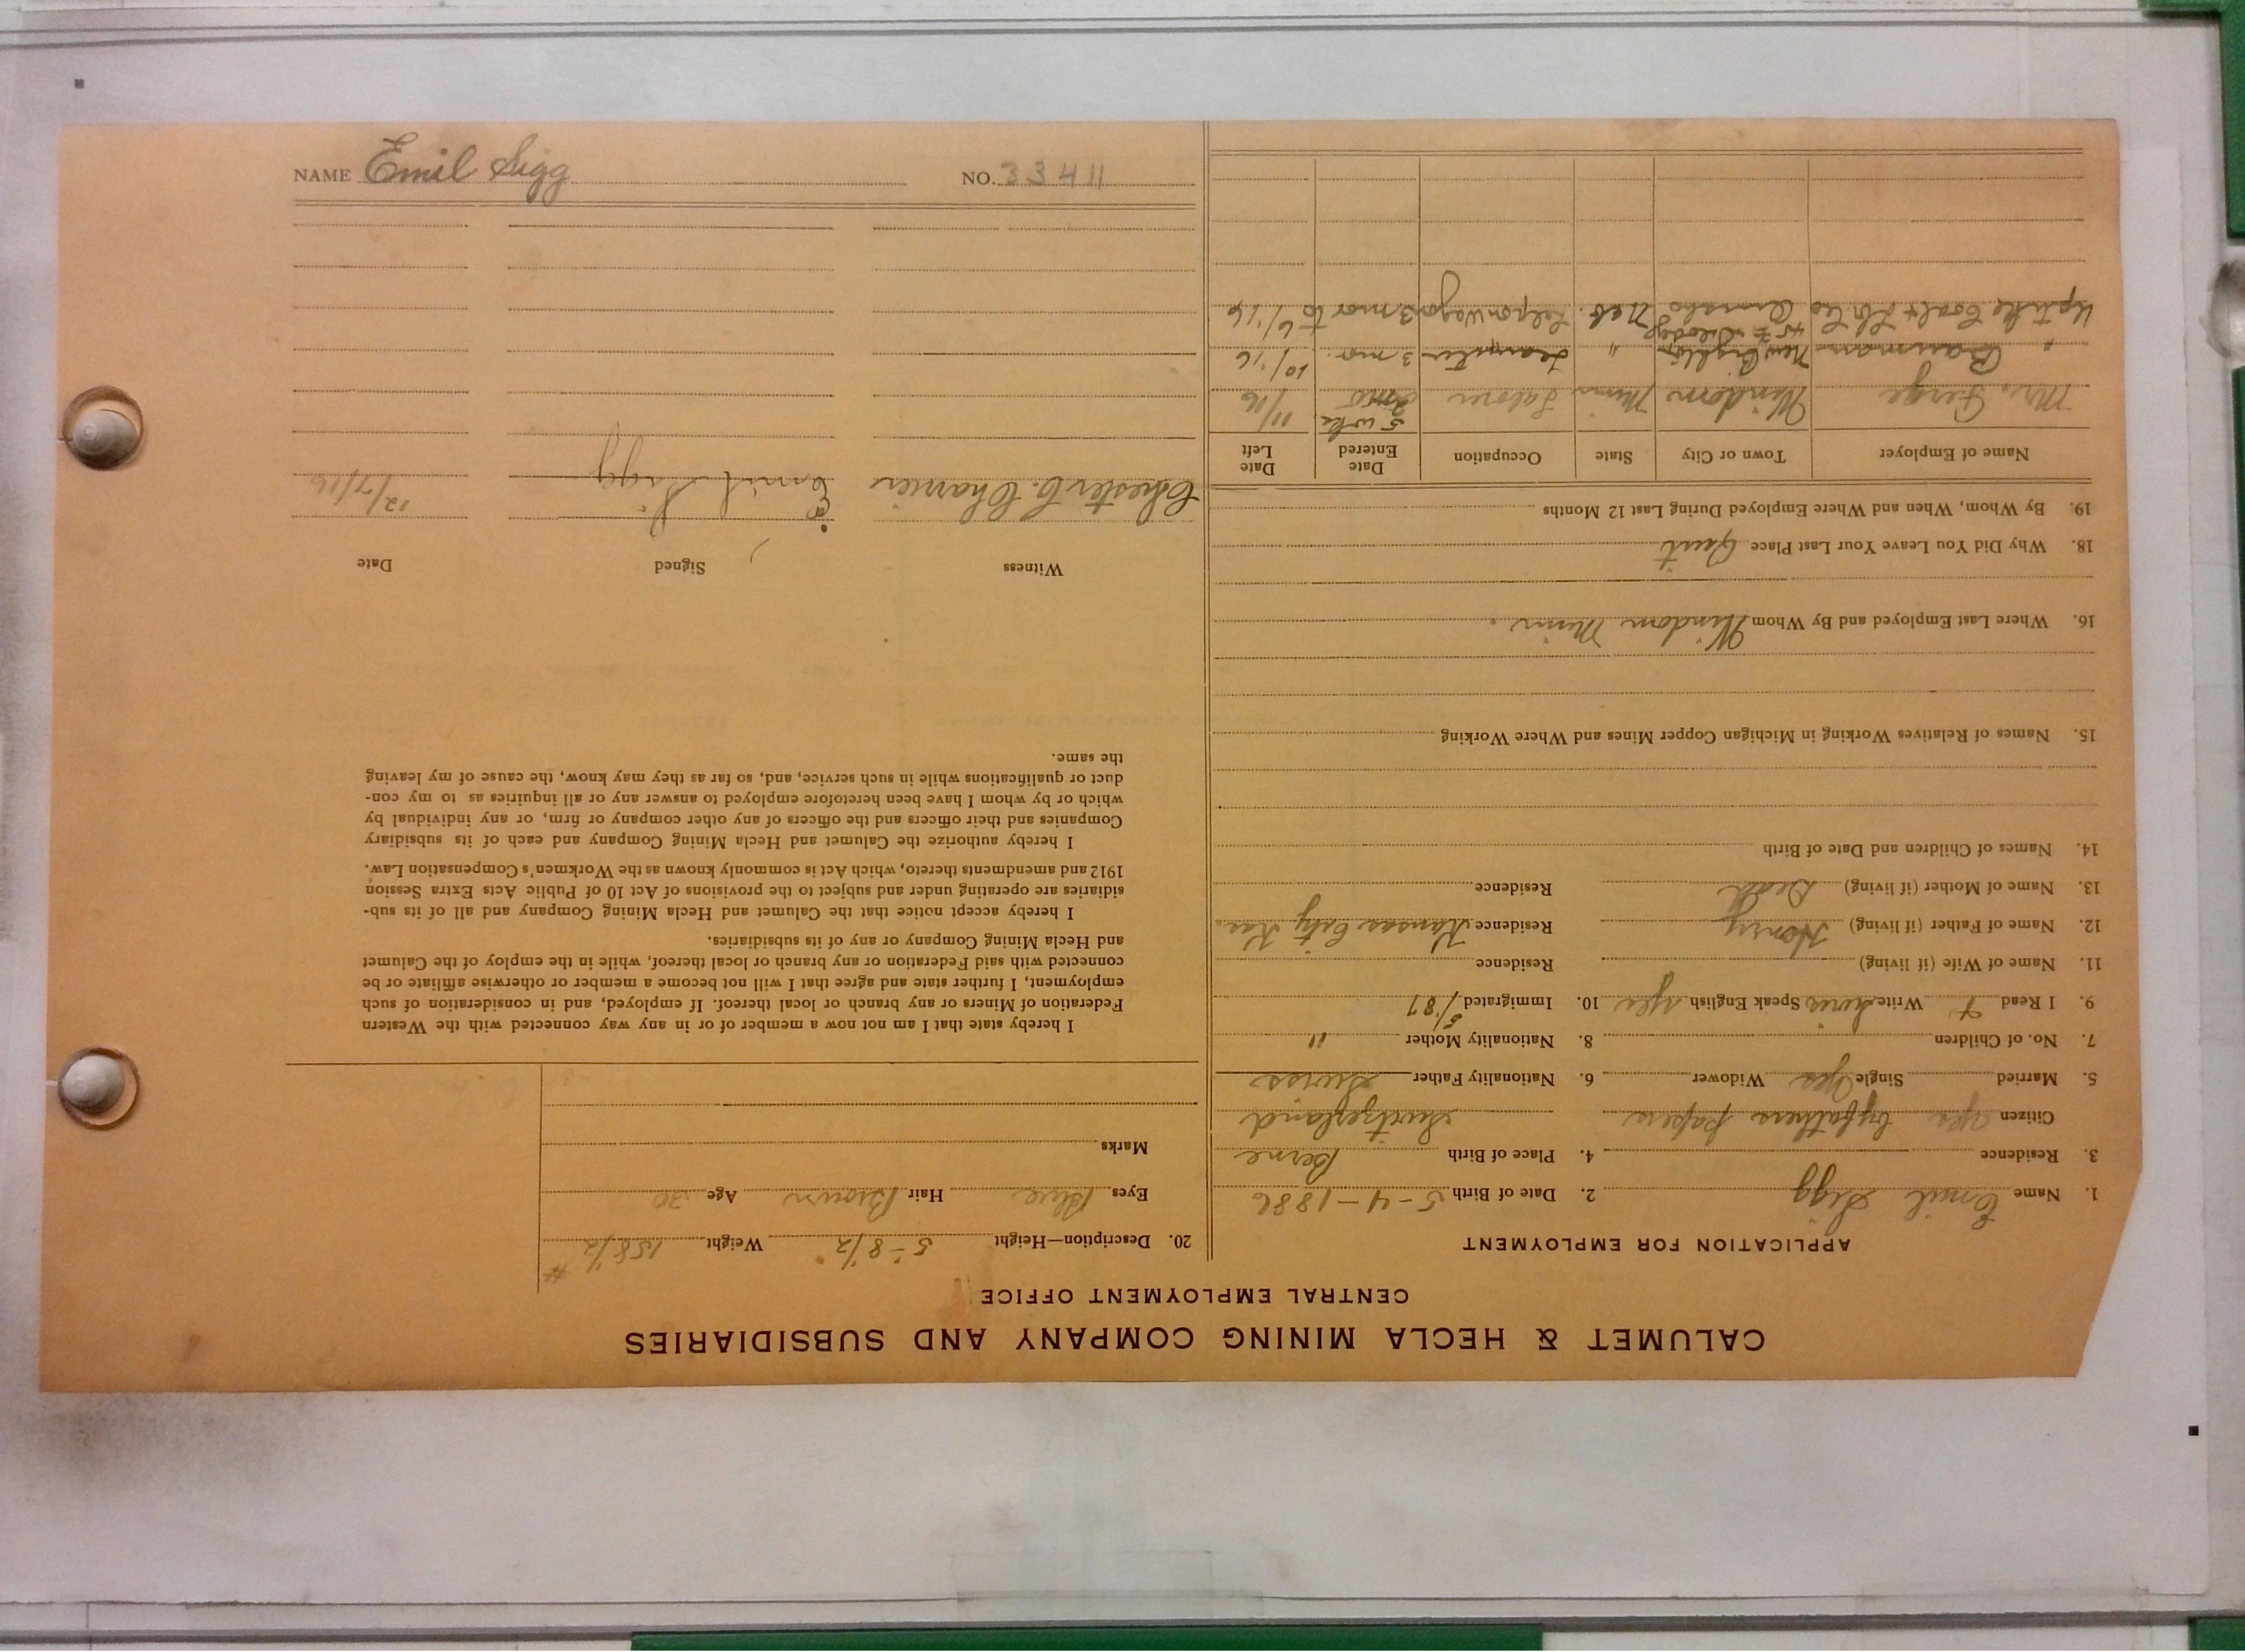 NAME Emil Sigg NO. 33411
CALUMET & HECLA MINING COMPANY AND SUBSIDIARIES
CENTRAL EMPLOYMENT OFFICE
APPLICATION FOR EMPLOYMENT
1. Name Emil Sigg 2. Date of Birth 5-4-1886
3. Residence 4. Place of Birth Berne
Citizen yes by fathers papers Switzerland
5. Married Single Yes Widower 6. Nationality Father Swiss
7. No. of Children 8. Nationality Mother "
9. I Read + Write Swiss Speak English yes 10. Immigrated 5/'87
11. Name of Wife (if living) Residence
12. Name of Father (if living) Henry Residence Kansas City Kas.
13. Name of Mother (if living) Dead Residence
14. Names of Children and Date of Birth
15. Names of Relatives Working in Michigan Copper Mines and Where Working
16. Where Last Employed and By Whom Windom Minn.
18. Why Did You Leave Your Last Place Quit
19. By Whom, When and Where Employed During Last 12 Months
Name of Employer Town or City State Occupation Date Entered Date Left
Mr. Windom Minn Laborer 5 wks 11/16
" Bauman New Brighton " teamster 3 mo. 10/16
Updike Coal + Co Omaha Neb. 3 mo to 6/16
20. Description—Height 5-8 1/2" Weight 158 1/2 #
Eyes Blue Hair Brown Age 30
Marks
I hereby state that I am not now a member of or in any way connected with the Western
Federation of Miners or any branch or local thereof. If employed, and in consideration of such
employment, I further state and agree that I will not become a member or otherwise affiliate or be
connected with said Federation or any branch or local thereof, while in the employ of the Calumet
and Hecla Mining Company or any of its subsidiaries.
I hereby accept notice that the Calumet and Hecla Mining Company and all of its sub-
sidiaries are operating under and subject to the provisions of Act 10 of Public Acts Extra Session
1912 and amendments thereto, which Act is commonly known as the Workmen's Compensation Law.
I hereby authorize the Calumet and Hecla Mining Company and each of its subsidiary
Companies and their officers and the officers of any other company or firm, or any individual by
which or by whom I have been heretofore employed to answer any or all inquiries as to my con-
duct or qualifications while in such service, and, so far as they may know, the cause of my leaving
the same.
Witness Signed Date
Chester C. Emil Sigg 12/7/16